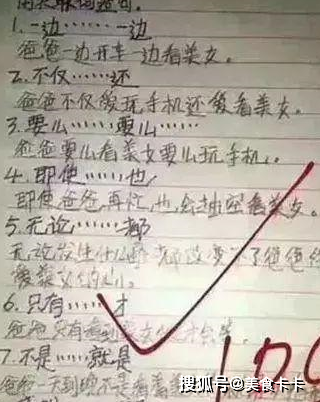 用关联词造句。
1.一边……一边
爸爸一边开车一边看美女。
2.不仅……还
爸爸不仅爱玩手机还爱看美女。
3.要么……要么……
爸爸要么看美女要么玩手机。
4.即使……也
即使爸爸再忙,也会抽空看美女。
5.无论……都
无论发生什么事都改变不了爸爸
爱美女的心。
6.只有……才
爸爸只有看到美女才会笑。
7.不是……就是
爸爸一天到晚不是看美
100
搜狐号@美食卡卡